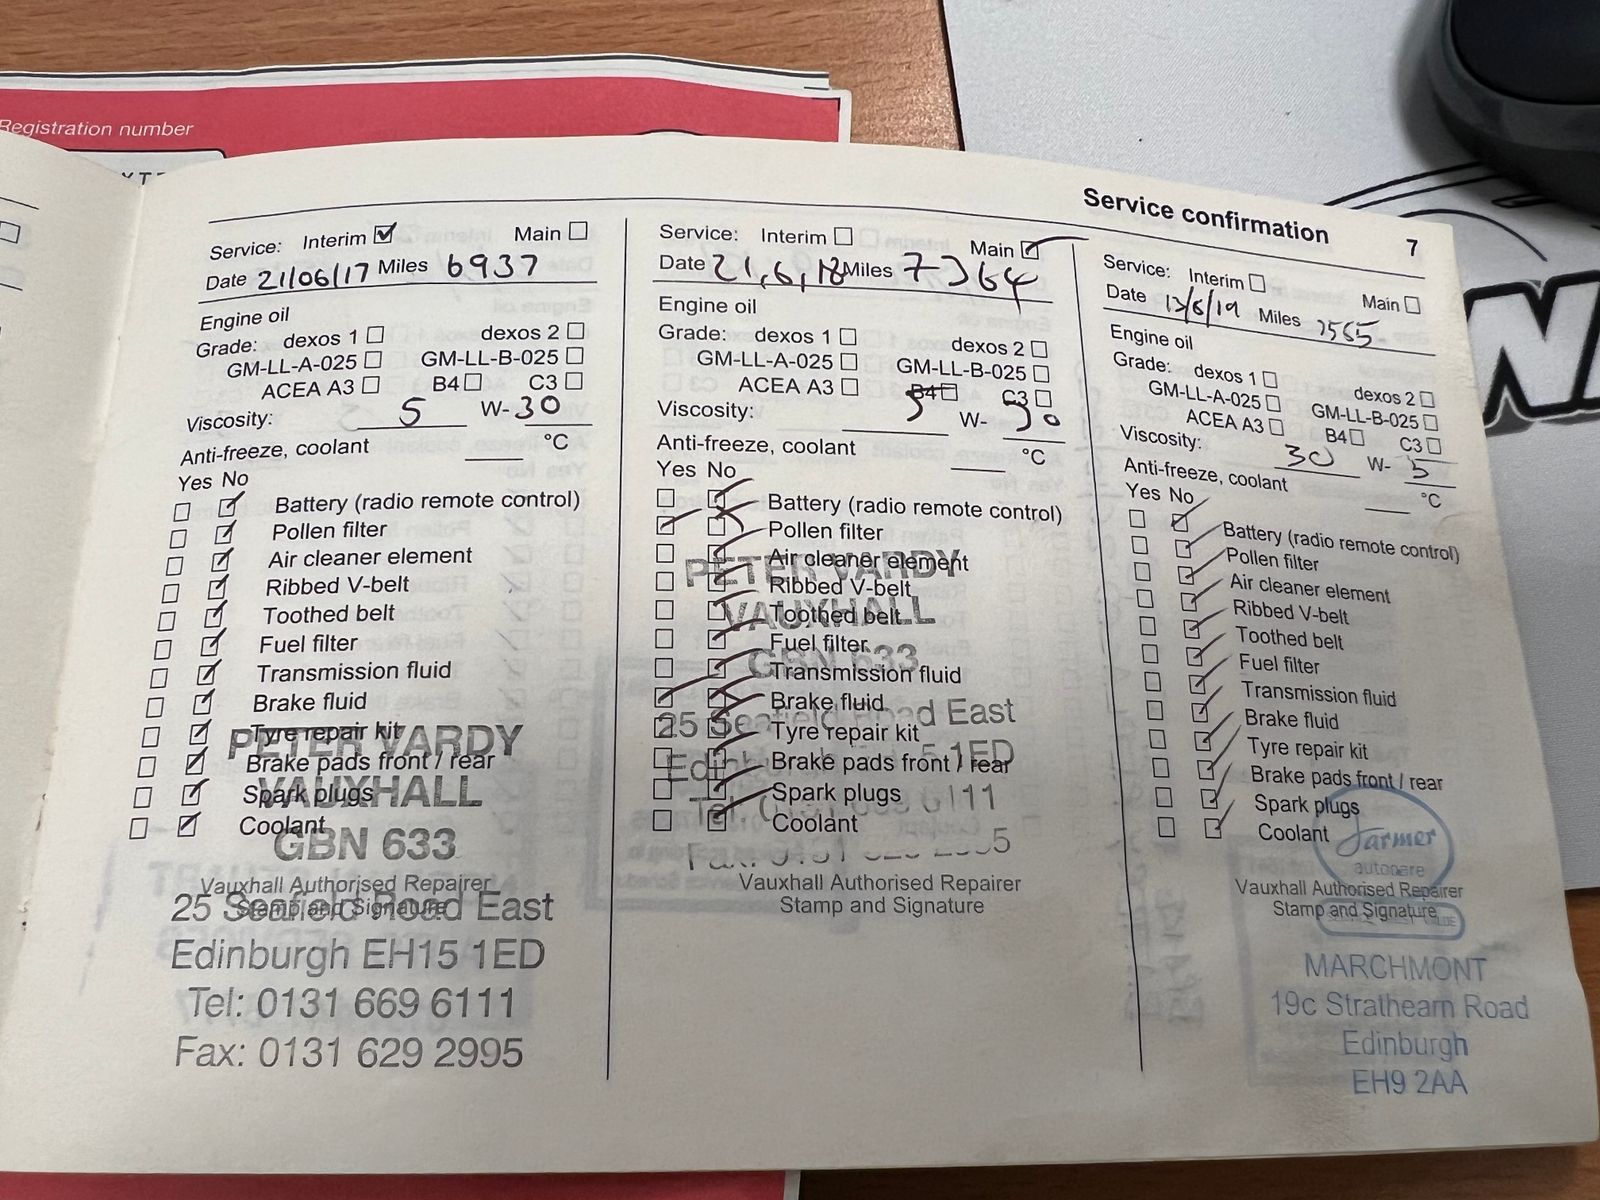 Registration number
Service confirmation 7
Service: Interim Main
Date 21/06/17 Miles 6937
Engine oil
Grade: dexos 1 dexos 2
GM-LL-A-025 GM-LL-B-025
ACEA A3 B4 C3
Viscosity: 5 W-30
Anti-freeze, coolant °C
Yes No
Battery (radio remote control)
Pollen filter
Air cleaner element
Ribbed V-belt
Toothed belt
Fuel filter
Transmission fluid
Brake fluid
Tyre repair kit
Brake pads front / rear
Spark plugs
Coolant
PETER VARDY
VAUXHALL
GBN 633
Vauxhall Authorised Repairer
Stamp and Signature
25 Seafield Road East
Edinburgh EH15 1ED
Tel: 0131 669 6111
Fax: 0131 629 2995
Service: Interim Main
Date 21,6,18 Miles 7364
Engine oil
Grade: dexos 1 dexos 2
GM-LL-A-025 GM-LL-B-025
ACEA A3 B4 C3
Viscosity: 5 W- 30
Anti-freeze, coolant °C
Yes No
Battery (radio remote control)
Pollen filter
Air cleaner element
Ribbed V-belt
Toothed belt
Fuel filter
Transmission fluid
Brake fluid
Tyre repair kit
Brake pads front / rear
Spark plugs
Coolant
PETER VARDY
VAUXHALL
GBN 633
25 Seafield Road East
Vauxhall Authorised Repairer
Stamp and Signature
Service: Interim Main
Date 13/6/19 Miles 7565
Engine oil
Grade: dexos 1 dexos 2
GM-LL-A-025 GM-LL-B-025
ACEA A3 B4 C3
Viscosity: 30 W- 5
Anti-freeze, coolant °C
Yes No
Battery (radio remote control)
Pollen filter
Air cleaner element
Ribbed V-belt
Toothed belt
Fuel filter
Transmission fluid
Brake fluid
Tyre repair kit
Brake pads front / rear
Spark plugs
Coolant
Farmer
autocare
Vauxhall Authorised Repairer
Stamp and Signature
MARCHMONT
19c Strathearn Road
Edinburgh
EH9 2AA